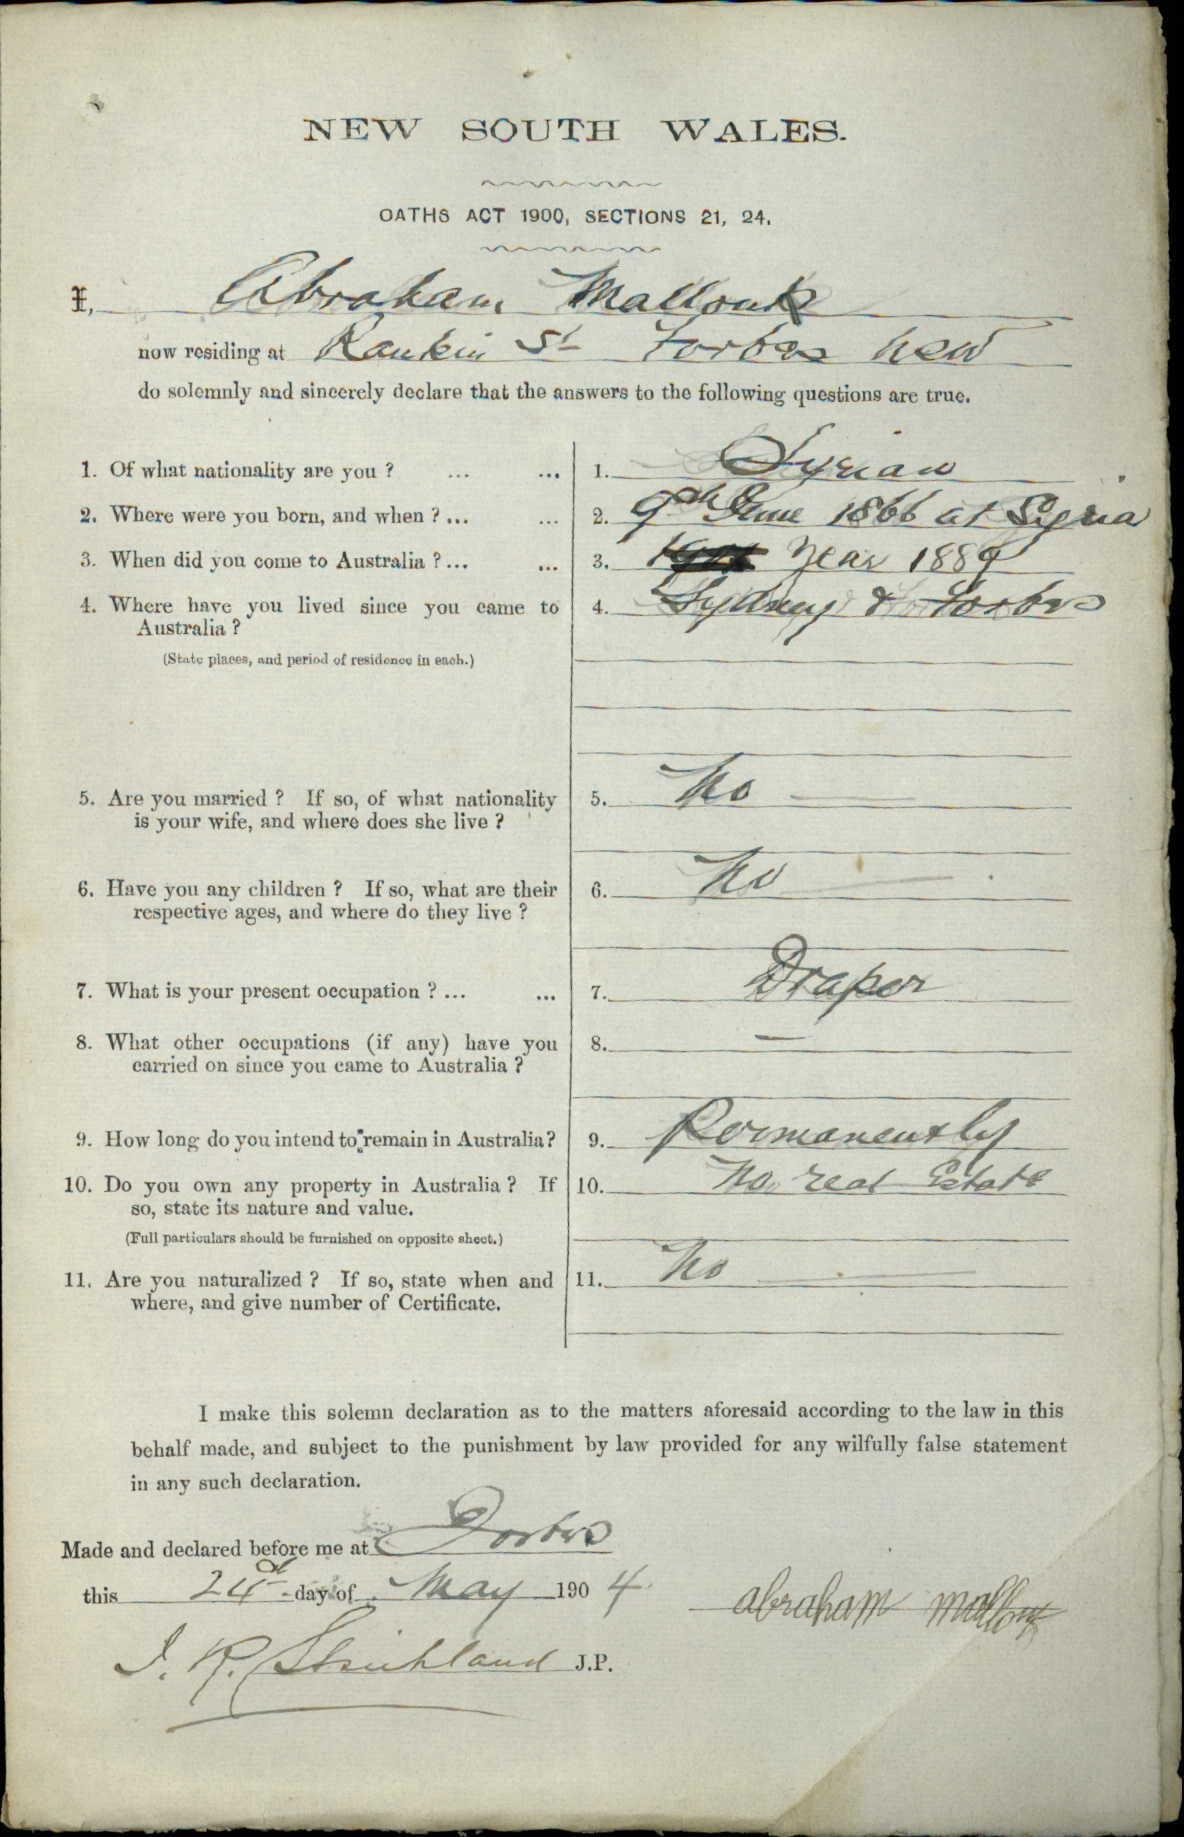 NEW SOUTH WALES.
OATHS ACT 1900, SECTIONS 21, 24.
I, Abraham Mallouk
now residing at Rankin St Forbes NSW
do solemnly and sincerely declare that the answers to the following questions are true.
1. Of what nationality are you ? ... ... 1. Syrian
2. Where were you born, and when ? ... ... 2. 9th June 1866 at Syria
3. When did you come to Australia ? ... ... 3. Year 1889
4. Where have you lived since you came to 4. Sydney & Forbes
Australia ?
(State places, and period of residence in each.)
5. Are you married ? If so, of what nationality 5. No
is your wife, and where does she live ?
6. Have you any children ? If so, what are their 6. No
respective ages, and where do they live ?
7. What is your present occupation ? ... ... 7. Draper
8. What other occupations (if any) have you 8. —
carried on since you came to Australia ?
9. How long do you intend to remain in Australia? 9. Permanently
10. Do you own any property in Australia ? If 10. No real Estate
so, state its nature and value.
(Full particulars should be furnished on opposite sheet.)
11. Are you naturalized ? If so, state when and 11. No
where, and give number of Certificate.
I make this solemn declaration as to the matters aforesaid according to the law in this
behalf made, and subject to the punishment by law provided for any wilfully false statement
in any such declaration.
Made and declared before me at Forbes
this 24th day of May 1904
abraham mallouk
J. R. Strickland J.P.